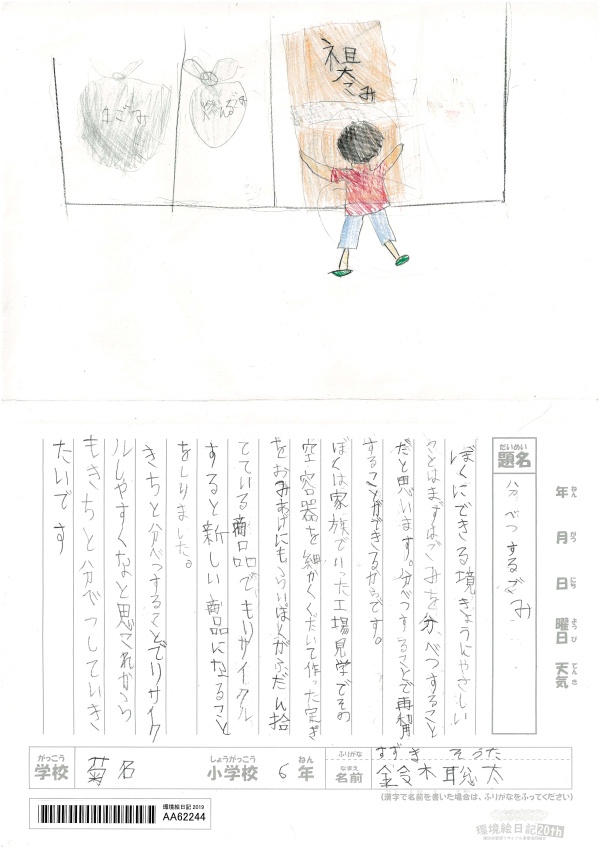 祖大ごみ
生ごみ
燃えるごみ
だいめい
題名
分べつするごみ
年 ねん
月 がつ
日 にち
曜日 ようび
天気 てんき
ぼくにできる境きょうにやさしい
ことはまずはごみを分べつすること
だと思います。分べつすることで再利用
することができるからです。
ぼくは家族で行った工場見学でその
空容器を細かくくだいて作った定ぎ
をおみあげにもらいぼくがふだん捨
てている商品でもリサイクル
すると新しい商品になること
をしりました。
きちと分べつすることでリサイク
ルしやすくなと思これから
もきちと分べつしていき
たいです
がっこう
学校
菊名
しょうがっこう
小学校
6
ねん
年
ふりがな
すずき そうた
なまえ
名前
鈴木聡太
(漢字で名前を書いた場合は、ふりがなをふってください)
環境絵日記 2019
AA62244
環境絵日記20th